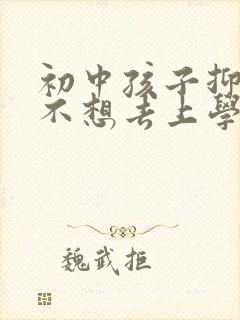 初中孩子抑
不想去上學
魏武拒